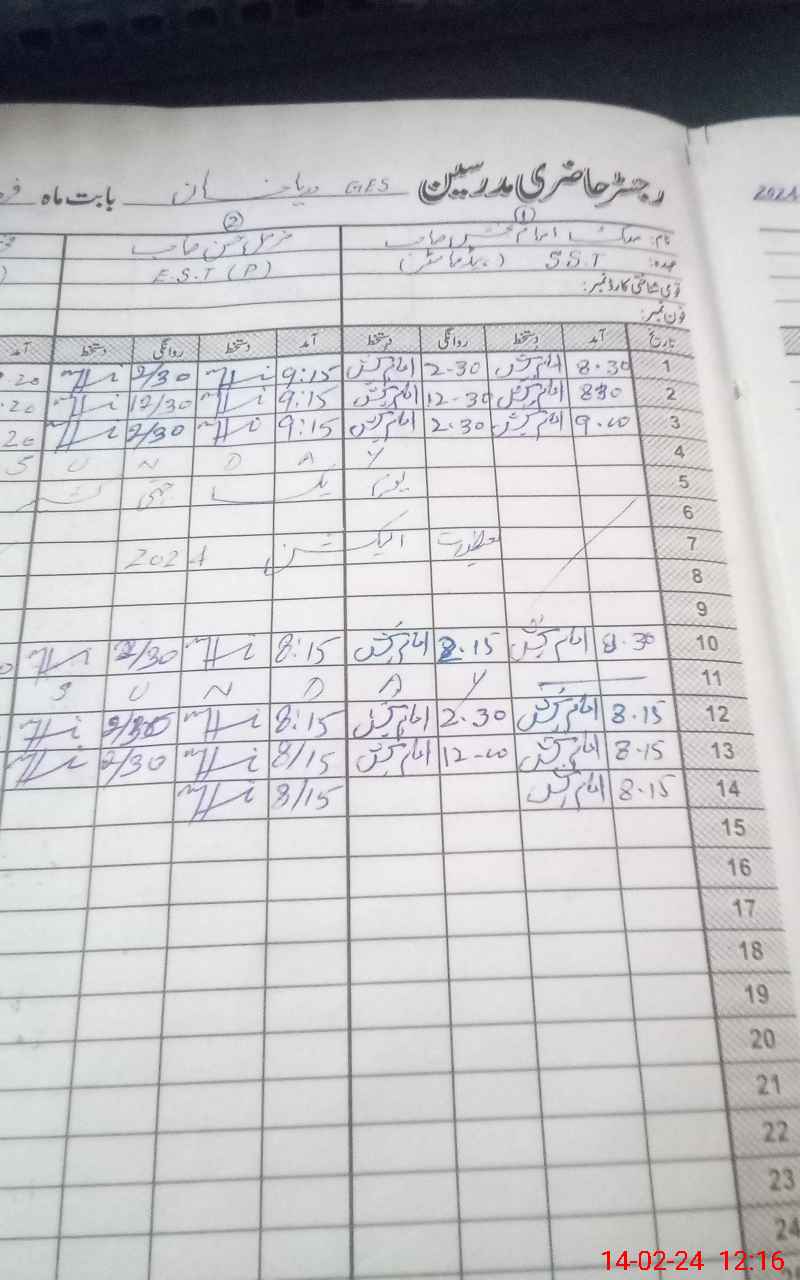 2024
رجسٹر حاضری مدرسین GES دریا خان بابت ماہ
① ②
نام: ملک امام بخش صاحب
عہدہ: S.S.T (ہیڈماسٹر) E.S.T (P)
قومی شناختی کارڈ نمبر:
فون نمبر:
تاریخ آمد دستخط روانگی دستخط آمد دستخط روانگی دستخط آمد
1 8.30 امام بخش 2.30 امام بخش 9:15 2/30 .20
2 830 امام بخش 12.30 امام بخش 9:15 12/30 .20
3 9.00 امام بخش 2.30 امام بخش 9:15 2/30 20
4 S U N D A Y
5 یوم یک جہتی کشمیر
6
7 تعطیلات الیکشن 2024
8
9
10 8.30 امام بخش 2.15 امام بخش 8:15 2/30
11 S U N D A Y
12 8.15 امام بخش 2.30 امام بخش 8:15 2/30
13 8.15 امام بخش 12-00 امام بخش 8/15 2/30
14 8.15 امام بخش 8/15
15
16
17
18
19
20
21
22
23
24
14-02-24 12:16